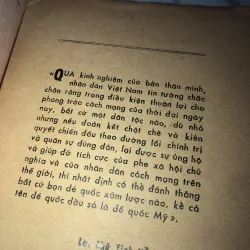 «QUA kinh nghiệm của bản thân mình,
nhân dân Việt Nam tin tưởng chắc
chắn rằng trong điều kiện thuận lợi cho
phong trào cách mạng của thời đại ngày
nay, bất cứ một dân tộc nào, dù nhỏ
nhưng nếu đoàn kết chặt chẽ và kiên
quyết chiến đấu theo đường lối chính trị
và quân sự đúng đắn, lại được sự ủng hộ
và giúp đỡ tích cực của phe xã hội chủ
nghĩa và của nhân dân cách mạng trên
thế giới, thì nhất định có thể đánh thắng
bất cứ bọn đế quốc xâm lược nào, kể cả
tên đế quốc đầu sỏ là đế quốc Mỹ».